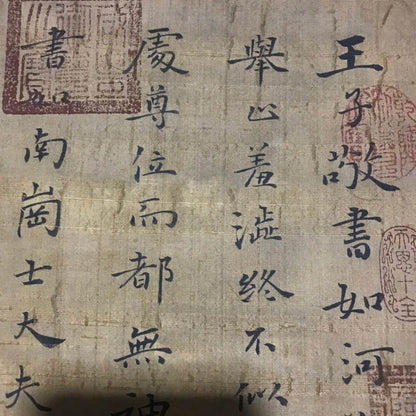 王子敬書如河
舉止羞澁終不似
處尊位而都無神
書如南崗士大夫